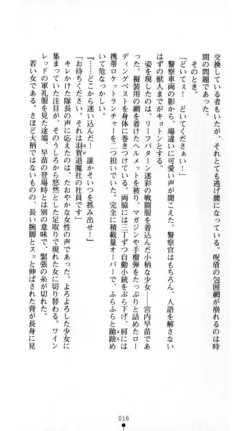 交換している者もいたが、それがとても逃げ腰になっている。呪盾の包囲網が崩れるのは時
間の問題であった。
そのとき。
「どいてぇ！　どいてくださぁい！」
警察車両の影から、場違いに可愛い声が聞こえた。警察官はもちろん、人語を解さない
はずの獣人までがキョトンとする。
姿を現したのは、リーフパターン迷彩の戦闘服を着込んだ小柄な少女――宮内早苗であ
った。擬装用の網を着けたヘルメットをかぶり、マガジンや手榴弾をたっぷりと詰めたロー
ディングベストを身に巻きつけている。両脇には三ずつ自動小銃をぶら下げ、肩には
携帯ロケットランチャーを二つ担いでいた。完全に積載量オーバーで、ふらふらと蹌踉め
いて危なっかしい。
「――どこから迷い込んだ！　誰かそいつを摘み出せ！」
「お待ちください。それは羽賀退魔社の社員です」
キレかけた隊長の声に応えたのは、たおやかな女性の声であった。よろよろした少女に
集まっていた注目が、そちらから悠然とした足取りで現れた女に切り替わる。ワイン
レッドの軍礼服を見た途端、早苗の登場時とは別の意味で、緊張の糸が切れた。
若い女である。さほど大柄ではないものの、長い腕脚とスッと伸ばされた背が長身に見
016